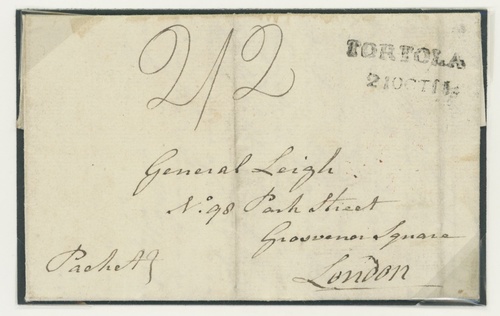 2/2
TORTOLA
General Leigh
No. 98 Park Street
Grosvenor Square
London
Packett